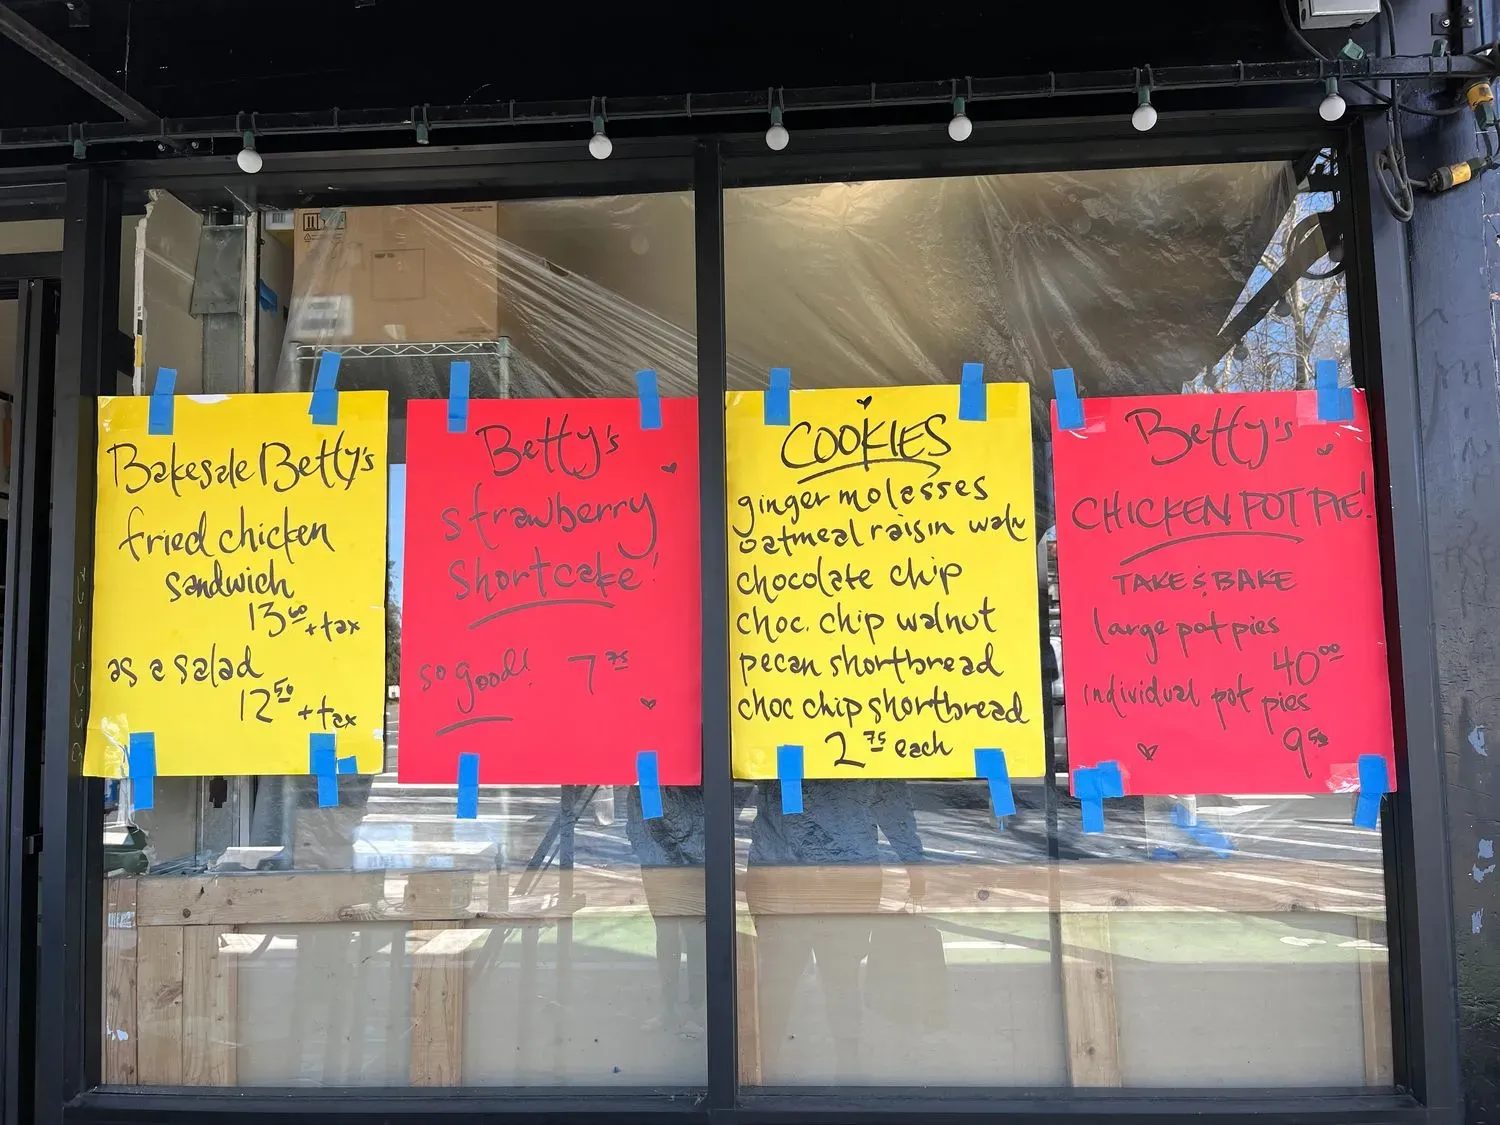 Bakesale Betty's
fried chicken
sandwich
13.00 + tax
as a salad
12.50 + tax
Betty's
strawberry
shortcake!
so good! 7.75
COOKIES
ginger molasses
oatmeal raisin waln
chocolate chip
choc. chip walnut
pecan shortbread
choc chip shortbread
2.75 each
Betty's
CHICKEN POT PIE!
TAKE & BAKE
large pot pies
40.00
individual pot pies
9.50